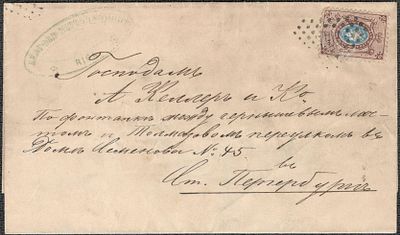 Господамъ
А Келлеръ и Ко.
По фонтанкѣ между чернышевымъ мос-
томъ и Толмазовомъ переулкомъ въ
Домѣ Семенова №. 45.
въ
Ст. Петербургѣ